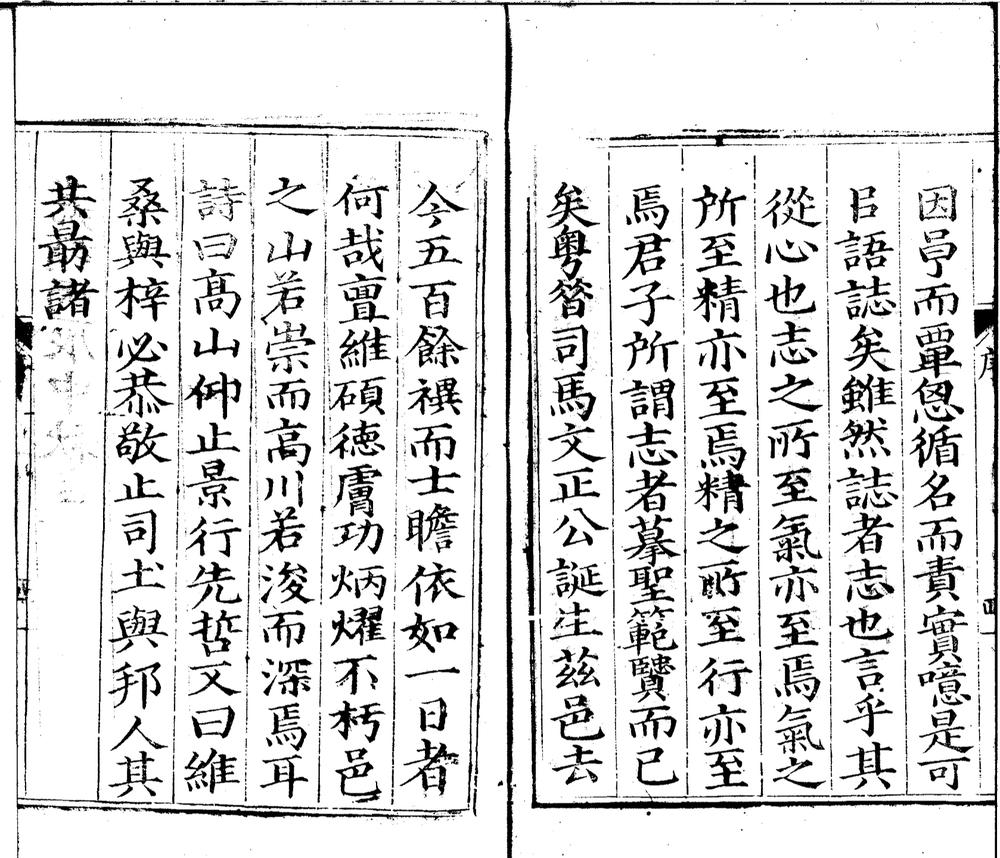 因號而覃恩循名而責實噫是可
㠯語誌矣雖然誌者志也言乎其
從心也志之所至氣亦至焉氣之
所至精亦至焉精之所至行亦至
焉君子所謂志者摹聖範賢而已
矣粵簪司馬文正公誕生茲邑去
序
四
今五百餘禩而士瞻依如一日者
何哉亶維碩德膚功炳燿不朽邑
之山若崇而高川若浚而深焉耳
詩曰高山仰止景行先哲又曰維
桑與梓必恭敬止司土與邦人其
共勗諸